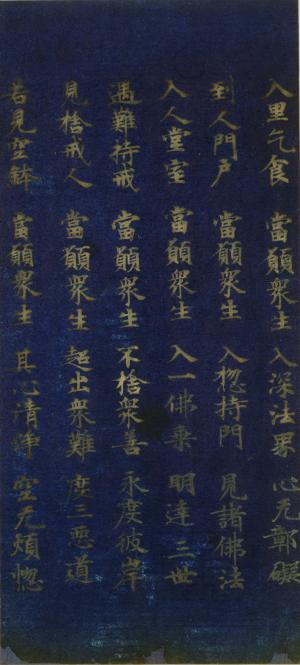 入里乞食 當願衆生 入深法界 心无鄣礙
到人門戸 當願衆生 入惣持門 見諸佛法
入人堂室 當願衆生 入一佛乗 明達三世
遇難持戒 當願衆生 不捨衆善 永度彼岸
見捨戒人 當願衆生 超出衆難 度三惡道
若見空鉢 當願衆生 其心清浄 空无煩惚